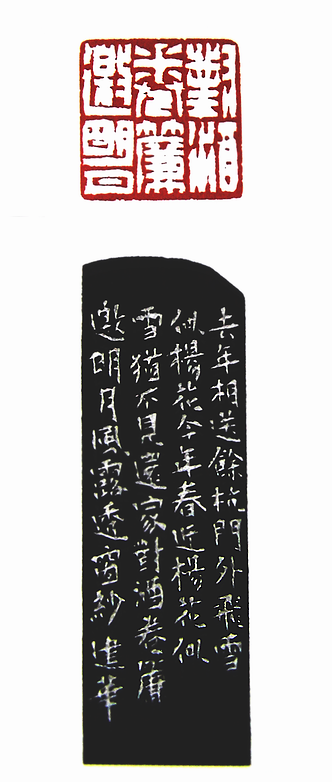 對酒
卷簾
邀明月
去年相送餘杭門外飛雪
似楊花今年春近楊花似
雪猶不見還家對酒卷簾
邀明月風露透窗紗 建華